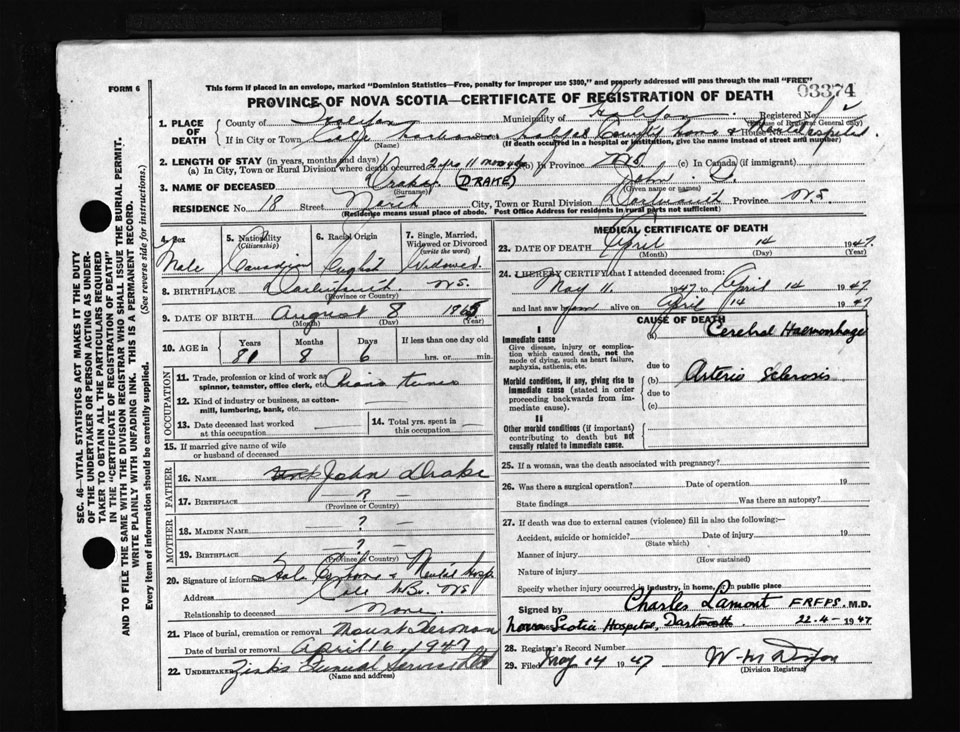 FORM 6
This form if placed in an envelope, marked "Dominion Statistics—Free, penalty for improper use $300," and properly addressed will pass through the mail "FREE"
03374
PROVINCE OF NOVA SCOTIA—CERTIFICATE OF REGISTRATION OF DEATH
1. PLACE OF DEATH
County of Halifax Municipality of Halifax Registered No.
(For use of Registrar General only)
If in City or Town Cole Harbour Halifax County Home & Mental Hospital House No.
(Name) (If death occurred in a hospital or institution, give the name instead of street and number)
2. LENGTH OF STAY (in years, months and days)
(a) In City, Town or Rural Division where death occurred 2 yrs 11 mos (b) In Province N.S. (c) In Canada (if immigrant)
3. NAME OF DECEASED Drake (DRAKE) John
(Surname) (Given name or names)
RESIDENCE No. 18 Street North City, Town or Rural Division Dartmouth Province N.S.
(Residence means usual place of abode. Post Office Address for residents in rural parts not sufficient)
4. Sex
Male
5. Nationality
(Citizenship)
Canadian
6. Racial Origin
English
7. Single, Married, Widowed or Divorced
(write the word)
Widowed
8. BIRTHPLACE Dartmouth N.S.
(Province or Country)
9. DATE OF BIRTH August 8 1865
(Month) (Day) (Year)
10. AGE
Years Months Days If less than one day old
81 8 6 hrs. or min.
OCCUPATION
11. Trade, profession or kind of work as spinner, teamster, office clerk, etc. Piano tuner
12. Kind of industry or business, as cotton-mill, lumbering, bank, etc.
13. Date deceased last worked at this occupation
14. Total yrs. spent in this occupation
15. If married give name of wife or husband of deceased
FATHER
16. NAME John Drake
17. BIRTHPLACE — ? —
(Province or Country)
MOTHER
18. MAIDEN NAME — ? —
19. BIRTHPLACE — ? —
(Province or Country)
20. Signature of informant & Mental Hosp.
Address Cole Hbr. NS
Relationship to deceased None.
21. Place of burial, cremation or removal Mount Hermon
Date of burial or removal April 16, 1947
22. UNDERTAKER Zink's Funeral Service Ltd
(Name and address)
MEDICAL CERTIFICATE OF DEATH
23. DATE OF DEATH April 14 1947.
(Month) (Day) (Year)
24. I HEREBY CERTIFY that I attended deceased from:
May 11 1947 to April 14 1947
and last saw him alive on April 14 1947
CAUSE OF DEATH
I
Immediate cause
Give disease, injury or complication which caused death, not the mode of dying, such as heart failure, asphyxia, asthenia, etc.
(a) Cerebral Haemorrhage
due to
Morbid conditions, if any, giving rise to immediate cause (stated in order proceeding backwards from immediate cause).
(b) Arterio Sclerosis
due to
(c)
II
Other morbid conditions (if important) contributing to death but not causally related to immediate cause.
25. If a woman, was the death associated with pregnancy?
26. Was there a surgical operation? Date of operation 19
State findings Was there an autopsy?
27. If death was due to external causes (violence) fill in also the following:—
Accident, suicide or homicide? Date of injury 19
(State which)
Manner of injury
(How sustained)
Nature of injury
Specify whether injury occurred in industry, in home, in public place
Signed by Charles Lamont FRFPS M.D.
Nova Scotia Hospital, Dartmouth. 22-4- 1947
28. Registrar's Record Number
29. Filed May 14 1947
(Division Registrar)
SEC. 46—VITAL STATISTICS ACT MAKES IT THE DUTY
OF THE UNDERTAKER OR PERSON ACTING AS UNDER-
TAKER TO OBTAIN ALL THE PARTICULARS REQUIRED
IN THE "CERTIFICATE OF REGISTRATION OF DEATH"
AND TO FILE THE SAME WITH THE DIVISION REGISTRAR WHO SHALL ISSUE THE BURIAL PERMIT.
WRITE PLAINLY WITH UNFADING INK. THIS IS A PERMANENT RECORD.
Every item of information should be carefully supplied. (See reverse side for instructions.)